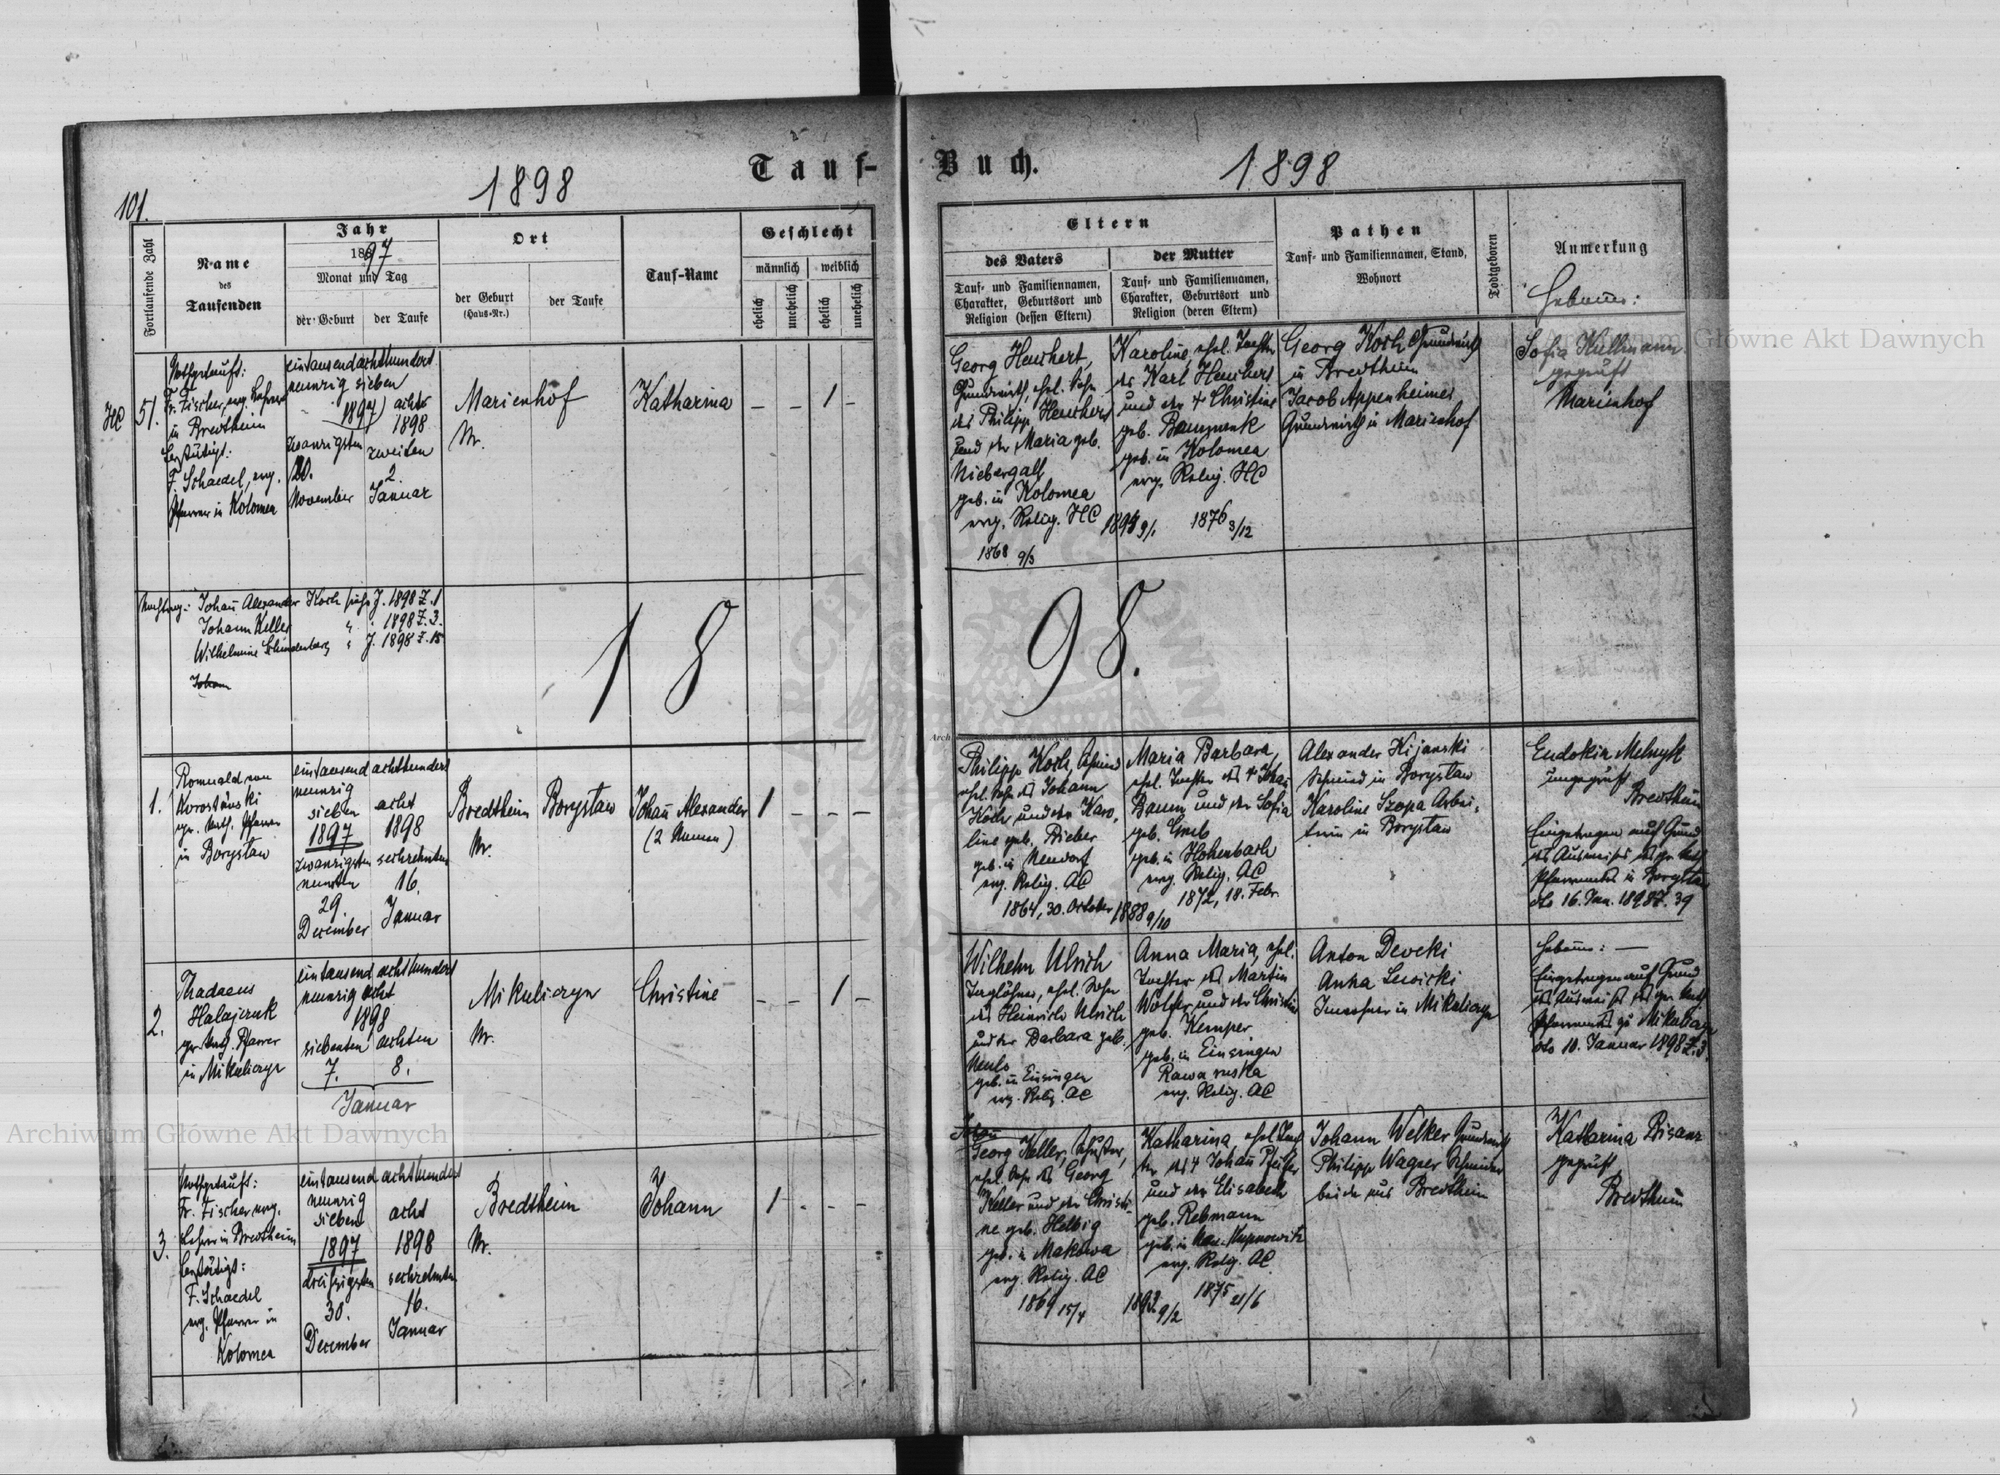 101.
1898
Tauf-
Buch.
1898
Fortlaufende Zahl
Name
des
Taufenden
Jahr
1897
Monat und Tag
der Geburt
der Taufe
Ort
der Geburt
(Haus-Nr.)
der Taufe
Tauf-Name
Geschlecht
männlich
weiblich
ehelich
unehelich
ehelich
unehelich
Eltern
des Vaters
Tauf- und Familiennamen,
Charakter, Geburtsort und
Religion (dessen Eltern)
der Mutter
Tauf- und Familiennamen,
Charakter, Geburtsort und
Religion (deren Eltern)
Pathen
Tauf- und Familiennamen, Stand,
Wohnort
Todtgeboren
Anmerkung
HC
51.
Nothgetauft:
Fr. Fischer, evg. Lehrer
in Bredtheim
bestätigt:
F. Schaedel, evg.
Pfarrer in Kolomea
eintausendachthundert
neunzig sieben
1897
zwanzigsten
20.
November
achter
1898
zweiten
2.
Januar
Marienhof
Nr.
Katharina
– – 1 –
Georg Heuchert,
Grundwirth, ehel. Sohn
des Philipp Heuchert
und der Maria geb.
Niebergall
geb. in Kolomea
evg. Relig. HC
1868 9/3
Karoline, ehel. Tochter
des Karl Heuchert
und der † Christine
geb.
geb. in Kolomea
evg. Relig. HC
1876 3/12
Georg Koch Grundwirth
in Bredtheim
Jacob Appenheimer
Grundwirth in Marienhof
Sofia Kullmann
geprüft
Marienhof
Nachtrag: Johann Alexander Koch siehe J. 1898 Z. 1
Johann Keller " " 1898 Z. 3.
Wilhelmine " J. 1898 Z. 15
Johann
1898.
1.
Romuald von
gr. kath. Pfarrer
in Borysław
eintausend achthundert
neunzig
sieben
1897
zwanzigsten
neunten
29.
December
acht
1898
sechzehnten
16.
Januar
Bredtheim
Nr.
Borysław
Johann Alexander
(2 Namen)
1 – – –
Philipp Koch, Schmied
ehel. Sohn des Johann
Koch und der Karo-
line geb. Bieber
geb. in Neudorf
evg. Relig. AC
1864, 30. October
1888 9/10
Maria Barbara,
ehel. Tochter des † Johann
Baum und der Sofia
geb. Greb
geb. in Hohenbach
evg. Relig. AC
1872, 18. Febr.
Alexander Kijanski
Schmied in Borysław
Karoline Szopa Arbei-
terin in Borysław
Eudokia Melnyk
ungeprüft
Bredtheim
Eingetragen auf Grund
des Ausweises des gr. kath.
Pfarramtes in Borysław
dto 16. Jan. 1898 Z. 39
2.
Thadaeus
Halajczuk
gr. kath. Pfarrer
in Mikuliczyn
eintausend achthundert
neunzig acht
1898
siebenten achten
7. 8.
Januar
Mikuliczyn
Nr.
Christine
– – 1 –
Wilhelm Ulrich
Taglöhner, ehel. Sohn
des Heinrich Ulrich
und der Barbara geb.
geb. in Einsingen
evg. Relig. AC
Anna Maria, ehel.
Tochter des Martin
Wolfer und der Christine
geb. Kemper
geb. in Einsingen
Rawa ruska
evg. Relig. AC
Anton Devcki
Anna Lewicki
Inwohner in Mikuliczyn
Hebamme: —
Eingetragen auf Grund
des Ausweises des gr. kath.
Pfarramtes zu Mikuliczyn
dto 10. Januar 1898 Z. 3.
3.
Nothgetauft:
Fr. Fischer evg.
Lehrer in Bredtheim
bestätigt:
F. Schaedel
evg. Pfarrer in
Kolomea
eintausend achthundert
neunzig
sieben
1897
dreissigsten
30.
December
acht
1898
sechzehnten
16.
Januar
Bredtheim
Nr.
Johann
1 - - -
Johann
Georg Keller, Schuster,
ehel. Sohn des Georg
Keller und der Christi-
ne geb. Helbig
geb. in Makowa
evg. Relig. AC
1869 15/4
1893 9/2
Katharina, ehel. Toch-
ter des † Johann Pfeifer
und der Elisabeth
geb. Rebmann
geb. in
evg. Relig. AC
1875 21/6
Johann Welker Grundwirth
Philipp Wagner Schneider
beide aus Bredtheim
Katharina Bisanz
geprüft
Bredtheim
Archiwum Główne Akt Dawnych
Archiwum Główne Akt Dawnych